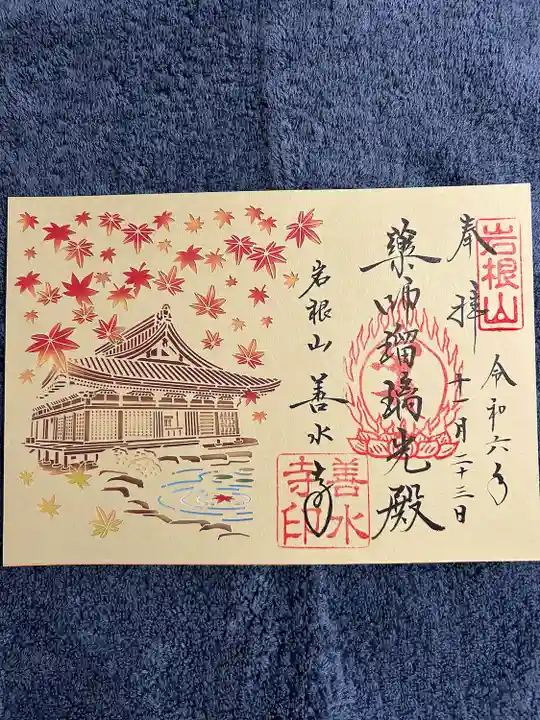 岩根山
奉拝
令和六年
十一月二十三日
薬師瑠璃光殿
岩根山 善水寺
善水寺印